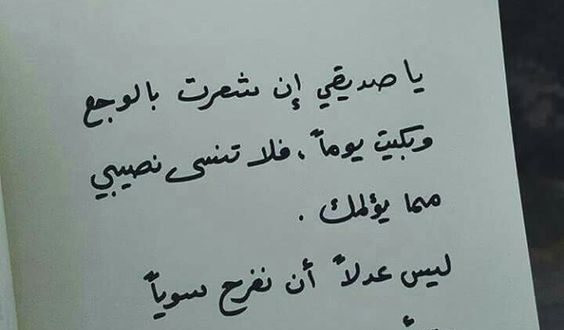 يا صديقي إن شعرت بالوجع
وبكيت يوماً ، فلا تنسى نصيبي
مما يؤلمك .
ليس عدلاً أن نفرح سوياً